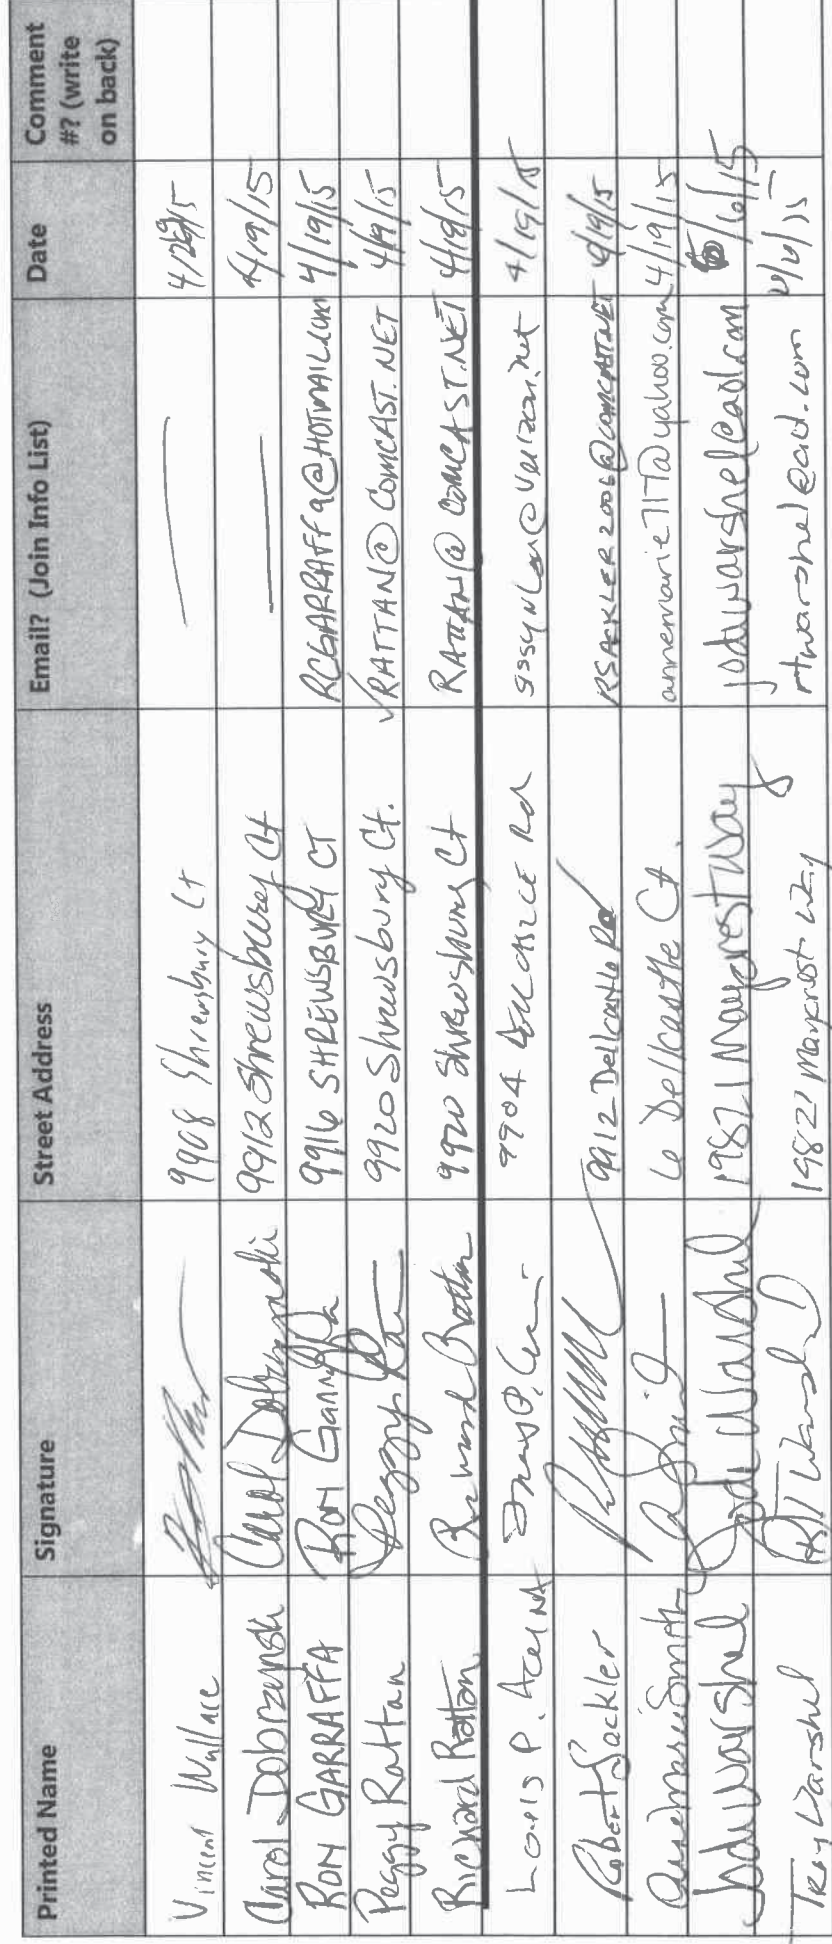 Printed Name Signature Street Address Email? (Join Info List) Date Comment #? (write on back)
Vincent Wallace 9908 Shrewsbury Ct — 4/
Carol Dobrzynski Carol Dobrzynski 9912 Shrewsbury Ct — 4/19/15
RON GARRAFFA Ron Garraffa 9916 SHREWSBURY CT RCGARRAFFA@HOTMAIL.COM 4/19/15
Peggy Rattan Peggy Rattan 9920 Shrewsbury Ct. VRATTAN@COMCAST.NET 4/19/15
Richard Rattan Richard Rattan 9920 Shrewsbury Ct RATTAN@COMCAST.NET 4/19/15
Louis P. Acerna 9904 Rd 4/19/15
Robert Sackler 9912 Dellcastle Rd RSACKLER2006@COMCAST.NET 4/19/15
Annemarie Smith 6 Dellcastle Ct. annemarie717@yahoo.com 4/19/15
Jodi Warshel Jodi Warshel 19821 Maycrest Way jodiwarshel@aol.com /6/15
Troy Warshel 19821 Maycrest Way rtwarshel@aol.com